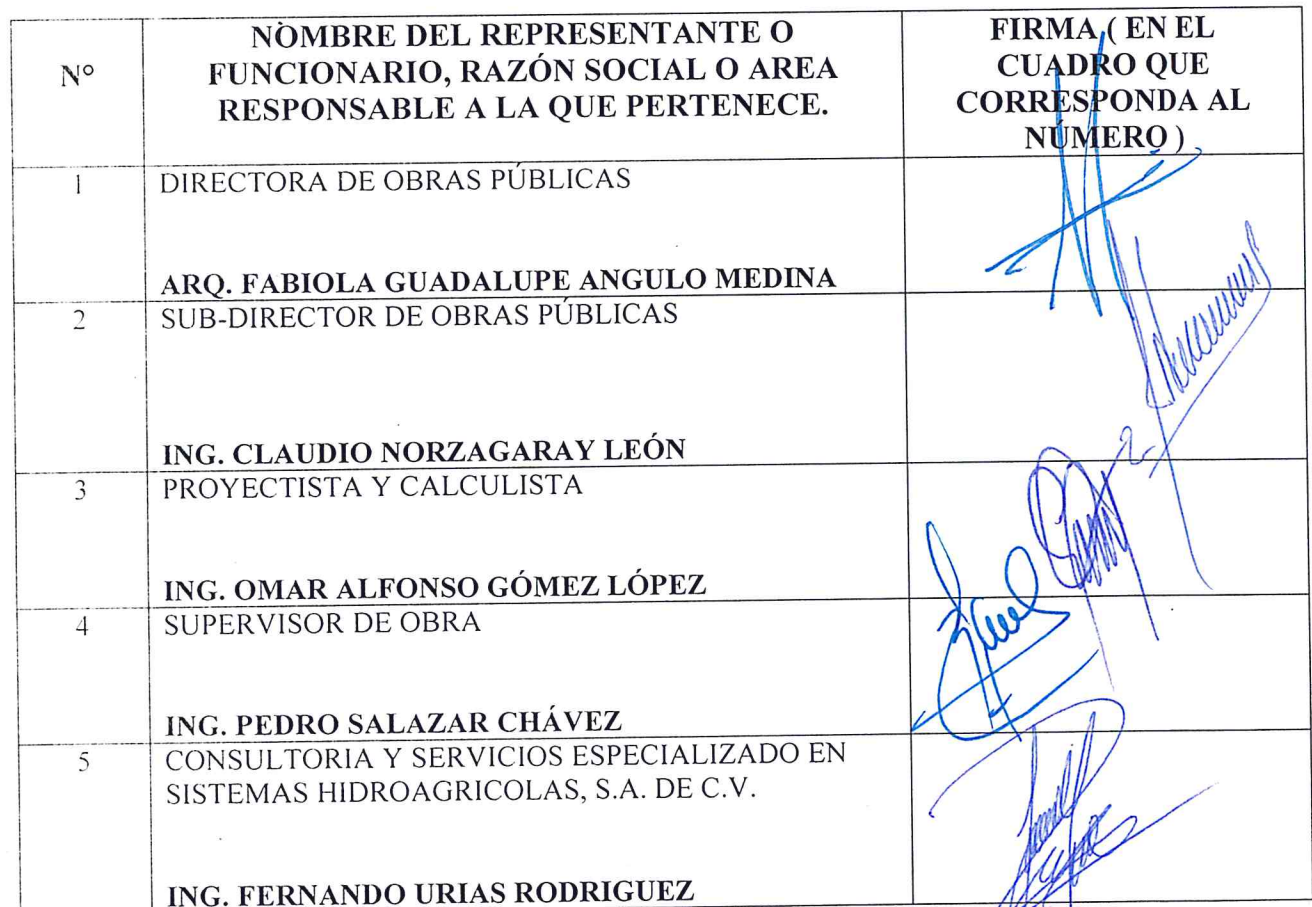 N°
NÒMBRE DEL REPRESENTANTE O
FUNCIONARIO, RAZÓN SOCIAL O AREA
RESPONSABLE A LA QUE PERTENECE.
FIRMA ( EN EL
CUADRO QUE
CORRESPONDA AL
NÚMERO )
1
DIRECTORA DE OBRAS PÚBLICAS
ARQ. FABIOLA GUADALUPE ANGULO MEDINA
2
SUB-DIRECTOR DE OBRAS PÚBLICAS
ING. CLAUDIO NORZAGARAY LEÓN
3
PROYECTISTA Y CALCULISTA
ING. OMAR ALFONSO GÓMEZ LÓPEZ
4
SUPERVISOR DE OBRA
ING. PEDRO SALAZAR CHÁVEZ
5
CONSULTORIA Y SERVICIOS ESPECIALIZADO EN
SISTEMAS HIDROAGRICOLAS, S.A. DE C.V.
ING. FERNANDO URIAS RODRIGUEZ